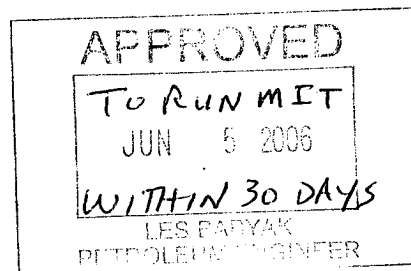 APPROVED
TO RUN MIT
JUN 5 2006
WITHIN 30 DAYS
LES BABYAK
PETROLEUM ENGINEER